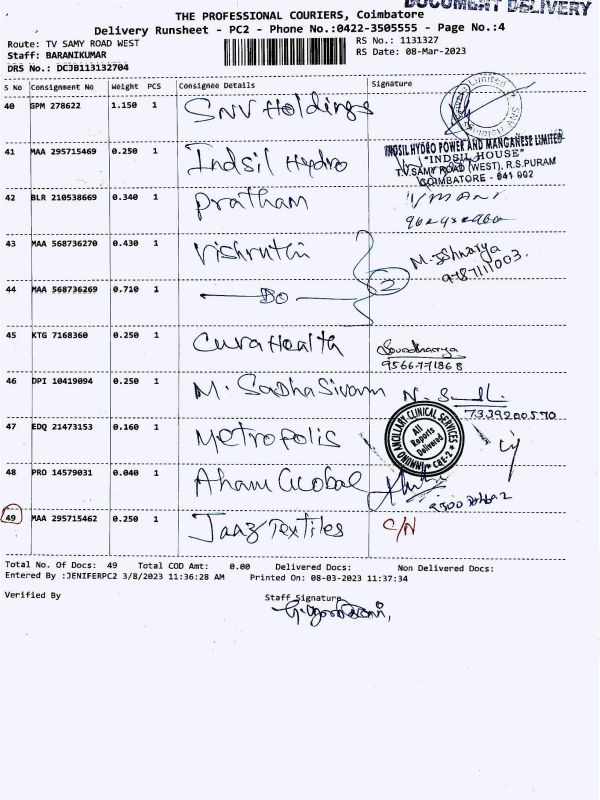 DOCUMENT DELIVERY
THE PROFESSIONAL COURIERS, Coimbatore
Delivery Runsheet - PC2 - Phone No.:0422-3505555 - Page No.:4
Route: TV SAMY ROAD WEST
RS No.: 1131327
Staff: BARANIKUMAR
RS Date: 08-Mar-2023
DRS No.: DCJB113132704
S No Consignment No Weight PCS Consignee Details Signature
40 GPM 278622 1.150 1 SNV Holdings
41 MAA 295715469 0.250 1 Indsil Hydro
INDSIL HYDRO POWER AND MANGANESE LIMITED
"INDSIL HOUSE"
T.V.SAMY ROAD (WEST), R.S.PURAM
COIMBATORE - 641 002
42 BLR 210538669 0.340 1 Pratham
43 MAA 568736270 0.430 1 Vishruthi
M. Ishwarya
9787111003.
44 MAA 568736269 0.710 1 Do 2
45 KTG 7168360 0.250 1 Cura Health
46 DPI 10419094 0.250 1 M. SadhaSivam
7339200570
47 EDQ 21473153 0.160 1 Metropolis
ANCILLARY CLINICAL SERVICES
All Reports Delivered
CBE-2
48 PRO 14579031 0.040 1 Aham Global
49 MAA 295715462 0.250 1 Jaaz Textiles C/N
Total No. Of Docs: 49 Total COD Amt: 0.00 Delivered Docs: Non Delivered Docs:
Entered By :JENIFERPC2 3/8/2023 11:36:28 AM Printed On: 08-03-2023 11:37:34
Verified By Staff Signature